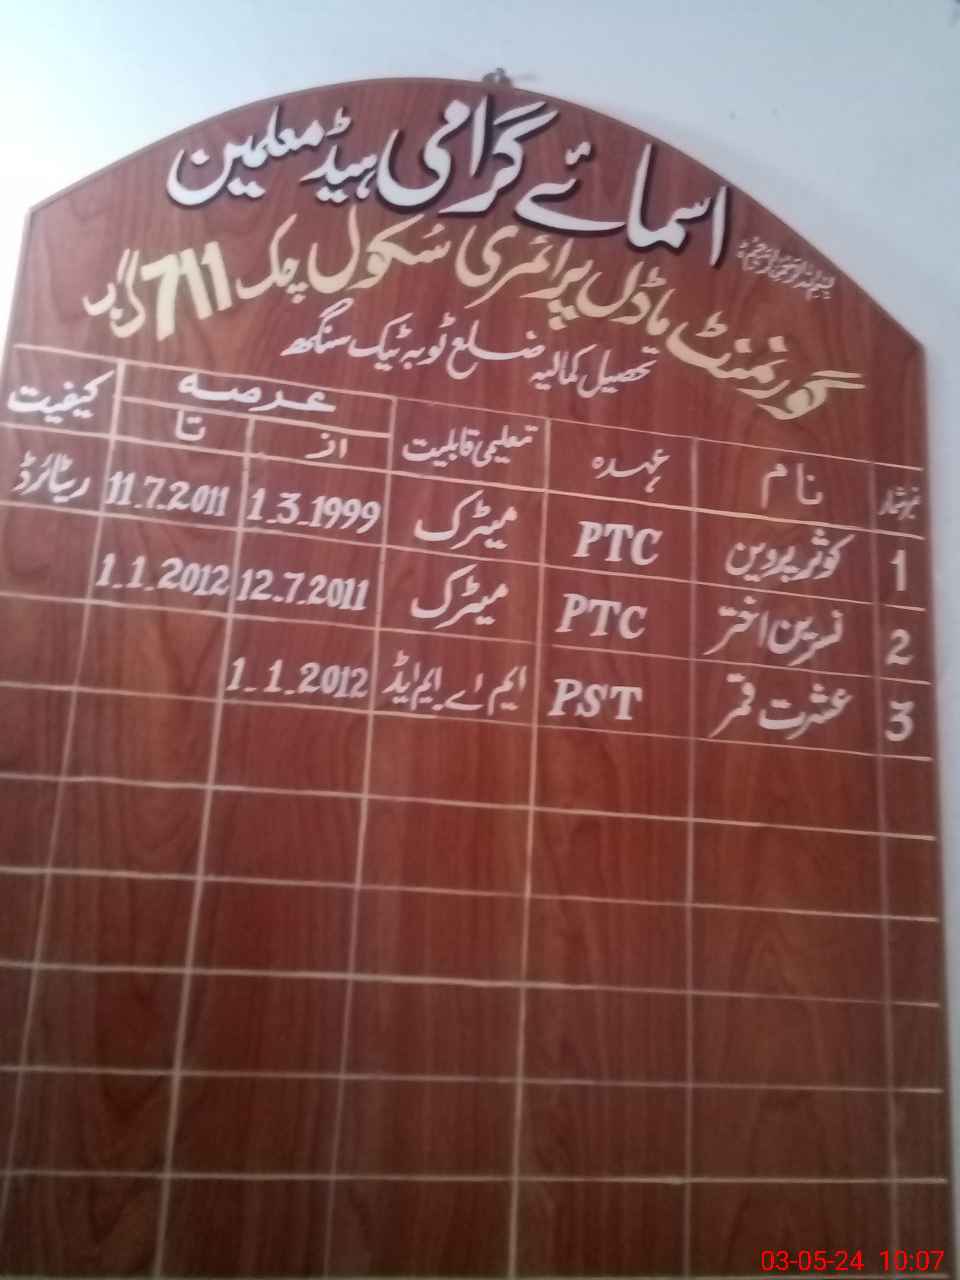 بسم اللہ الرحمن الرحیم
اسمائے گرامی ہیڈ معلمین
گورنمنٹ ماڈل پرائمری سکول چک 711 گ ب
تحصیل کمالیہ ضلع ٹوبہ ٹیک سنگھ
نمبر شمار نام عہدہ تعلیمی قابلیت عرصہ کیفیت
از تا
1 کوثر پروین PTC میٹرک 1.3.1999 11.7.2011 ریٹائرڈ
2 نسرین اختر PTC میٹرک 12.7.2011 1.1.2012
3 عشرت قمر PST ایم اے۔ایم ایڈ 1.1.2012
03-05-24 10:07